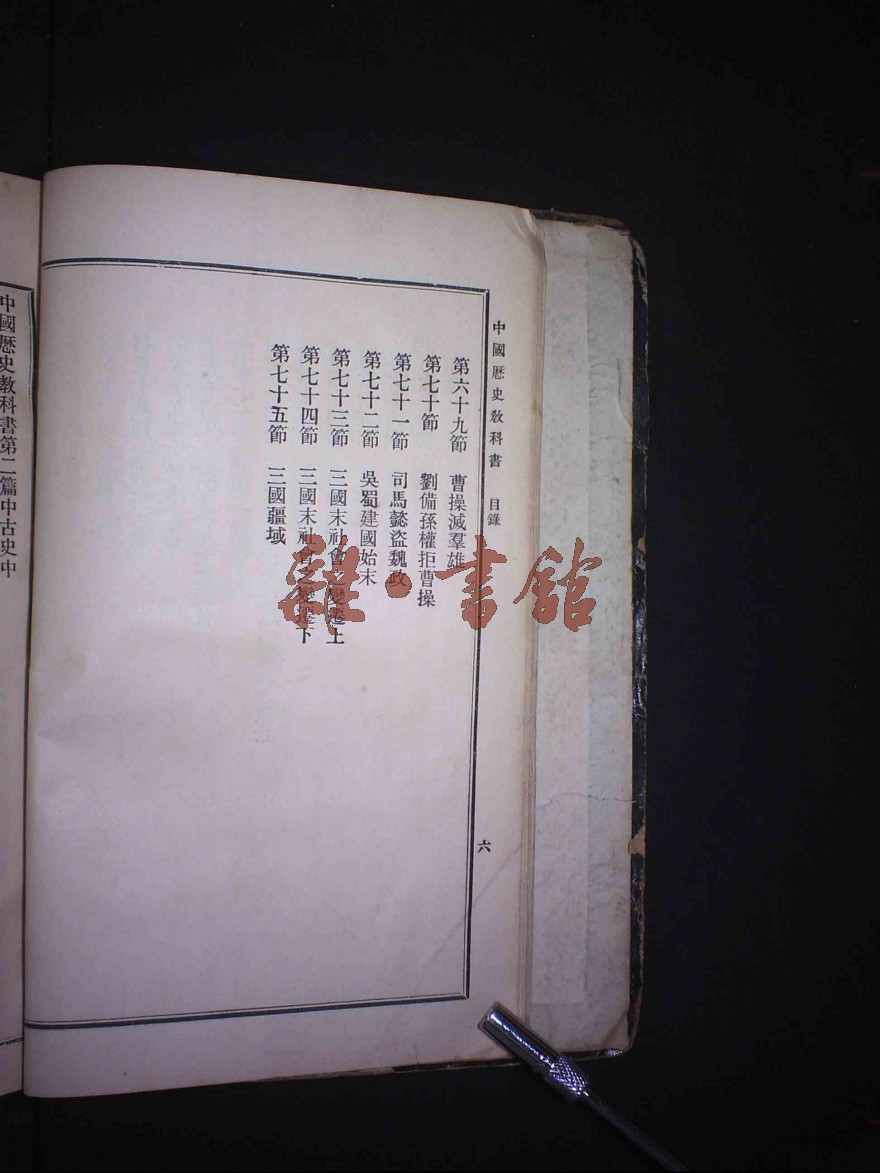 中國歷史敎科書 目錄
第六十九節 曹操滅羣雄
第七十節 劉備孫權拒曹操
第七十一節 司馬懿盜魏政
第七十二節 吳蜀建國始末
第七十三節 三國末社會之變遷上
第七十四節 三國末社會之變遷下
第七十五節 三國疆域
六
中國歷史敎科書第二篇中古史中
雜·書館